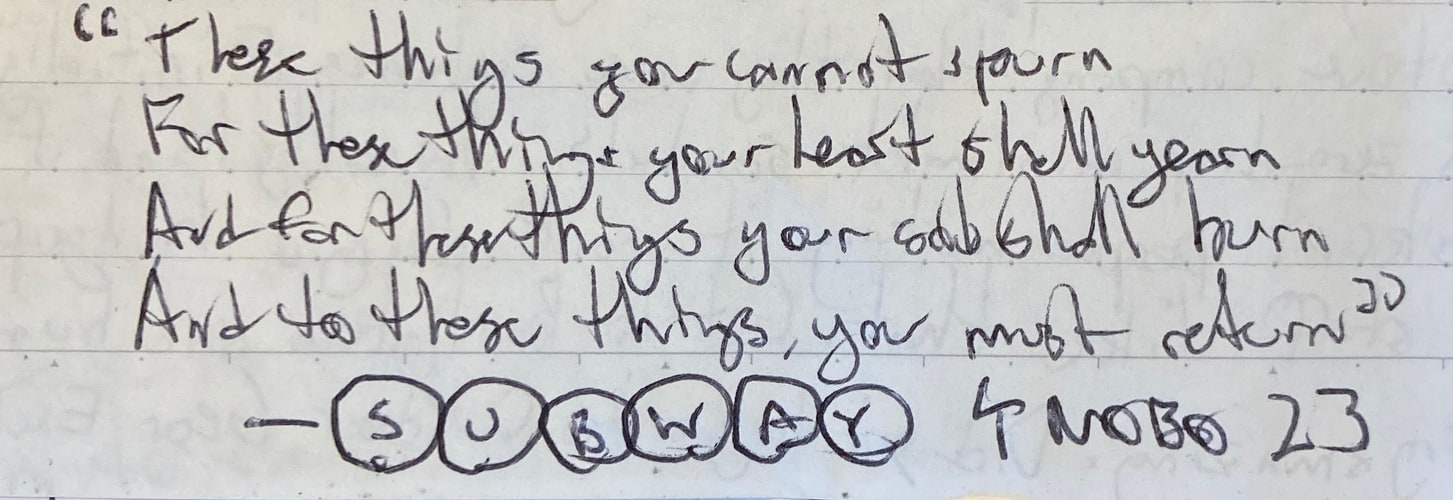 “These things you cannot spurn
For these things your heart shall yearn
And for these things your soul shall burn
And to these things, you must return”
— SUBWAY ↰ NOBO 23